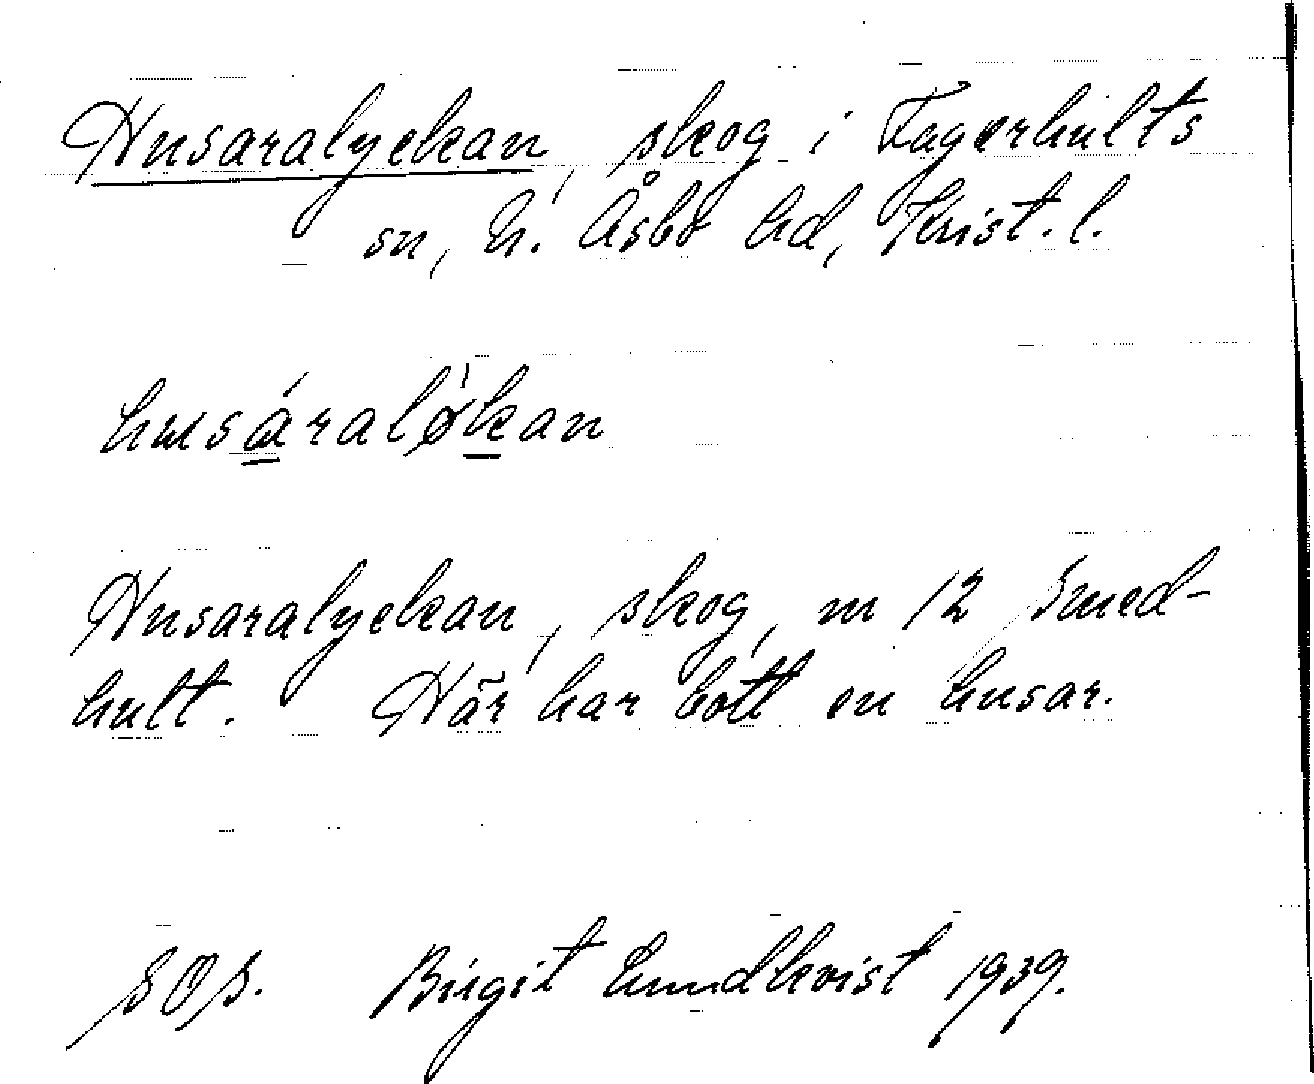 Husaralyckan, skog i Fagerhults
sn, N. Åsbo hd, Krist. l.
husáralø̀kan
Husaralyckan, skog, m 12 Smed-
hult. Här har bott en husar.
SOS. Birgit Lundkvist 1939.